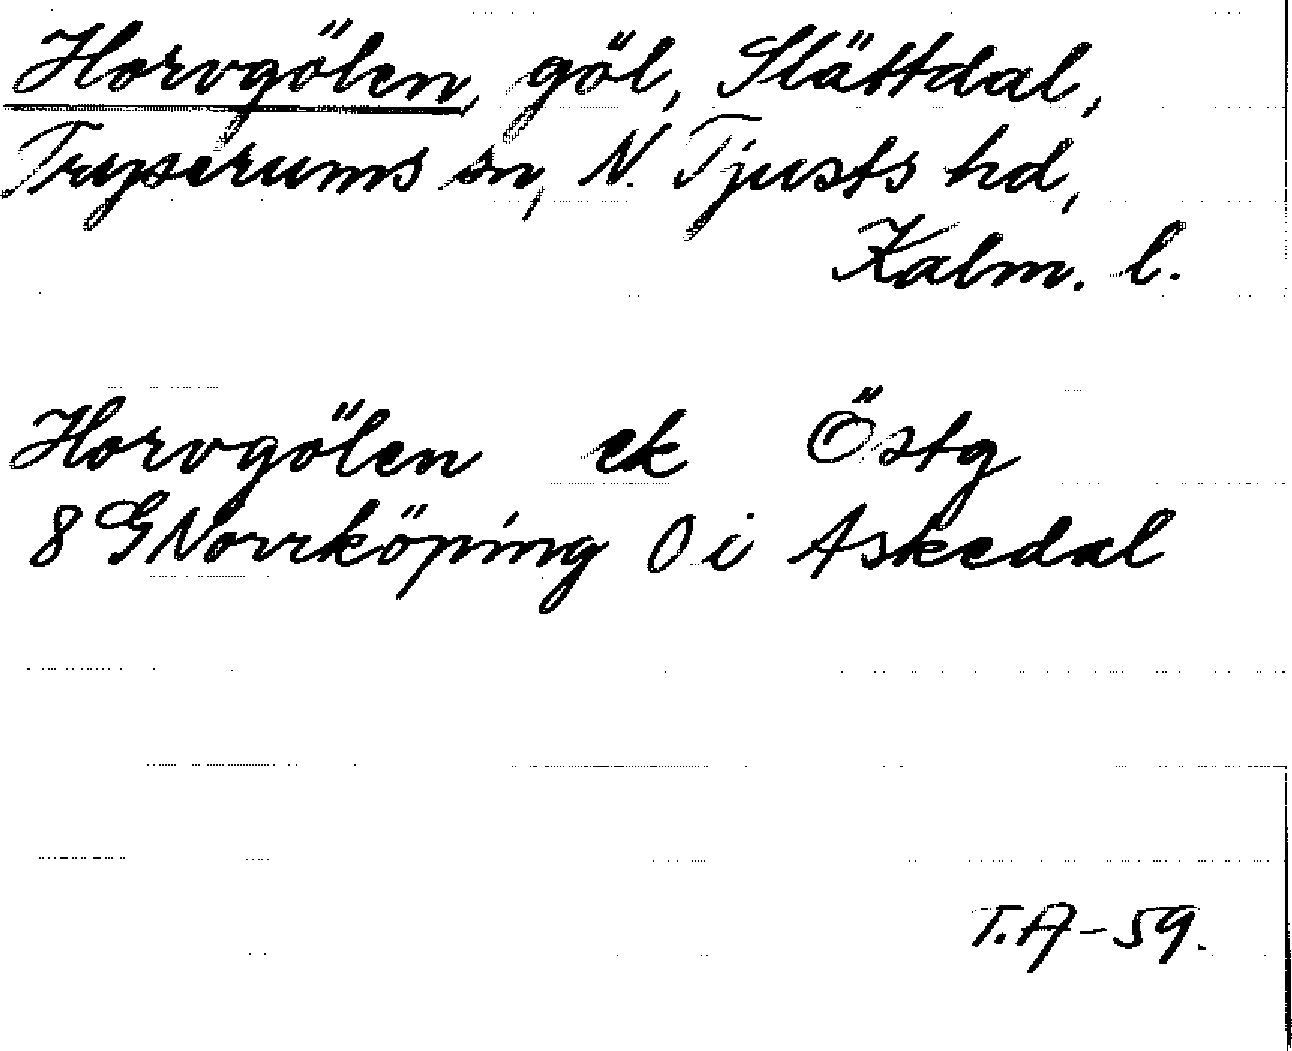 Horvgölen, göl, Slättdal,
Tryserums sn, N. Tjusts hd,
Kalm. l.
Horvgölen ek Östg
8 G Norrköping O i Askedal
T.A-59.